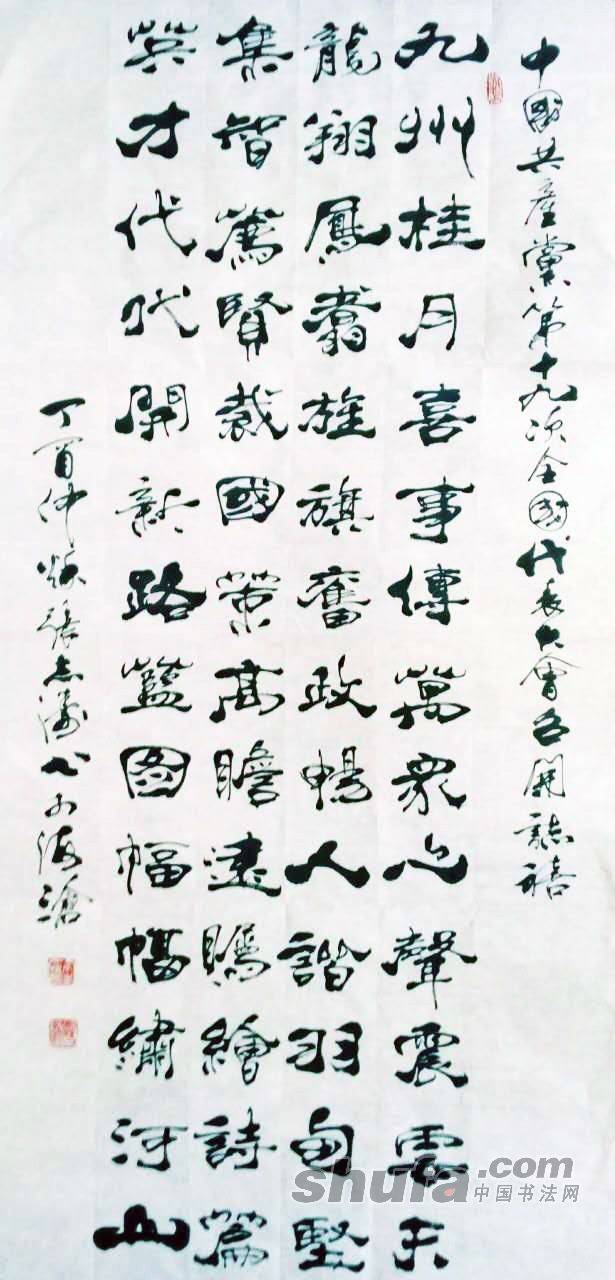 中國共產黨第十九次全國代表大會召開誌禧
九州桂月喜事傳萬眾心聲震雲天
龍翔鳳翥旌旗奮政暢人諧羽甸堅
集智篤賢裁國策高瞻遠矚繪詩篇
英才代代開新路籃图幅幅繡河山
丁酉仲秋張志書於海滄
shufa.com
中国书法网